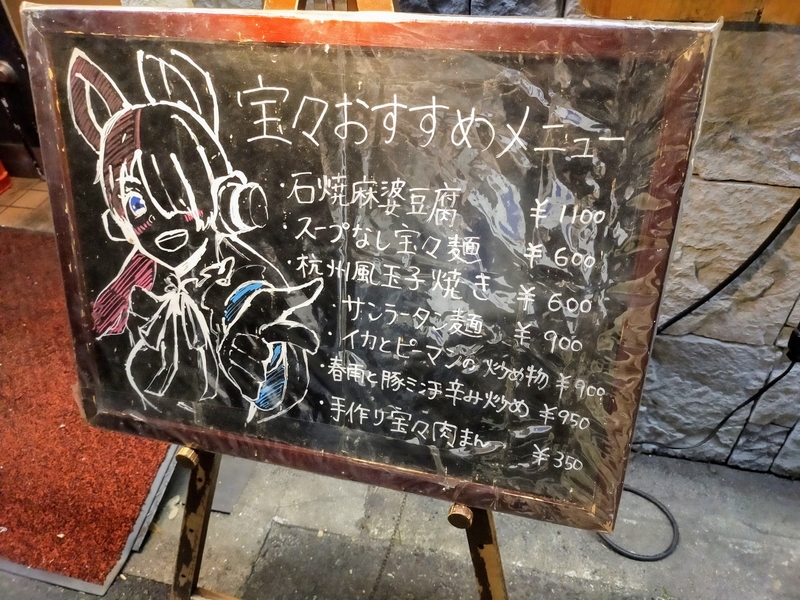 宝々おすすめメニュー
・石焼麻婆豆腐 ¥1100
・スープなし宝々麺 ¥600
・杭州風玉子焼き ¥600
・サンラータン麺 ¥900
・イカとピーマンの炒め物 ¥900
・春雨と豚ミンチ辛み炒め ¥950
・手作り宝々肉まん ¥350